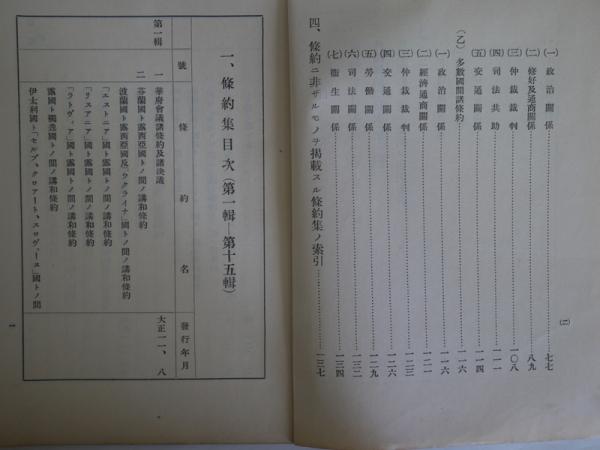 (一) 政治關係……七七
(二) 修好及通商關係……八九
(三) 仲裁裁判……一〇八
(四) 司法共助……一一一
(五) 交通關係……一一四
(乙) 多數國間諸條約……一一六
(一) 政治關係……一一六
(二) 經濟通商關係……一二一
(三) 仲裁裁判……一二三
(四) 交通關係……一二六
(五) 勞働關係……一二九
(六) 司法關係……一三二
(七) 衞生關係……一三四
四、條約ニ非ザルモノヲ掲載スル條約集ノ索引……一三七
(二)
一、條約集目次(第一輯—第十五輯)
號 條約名 發行年月
第一輯
一 華府會議諸條約及諸決議 大正一一、八
二 芬蘭國ト露西亞國トノ間ノ講和條約
波蘭國ト露西亞國及「ウクライナ」國トノ間ノ講和條約
「エストニア」國ト露國トノ間ノ講和條約
「リスアニア」國ト露國トノ間ノ講和條約
「ラトヴィア」國ト露國トノ間ノ講和條約
露國ト獨逸國トノ間ノ講和條約
伊太利國ト「セルブ、クロアート、スロヴェーヌ」國トノ間
一